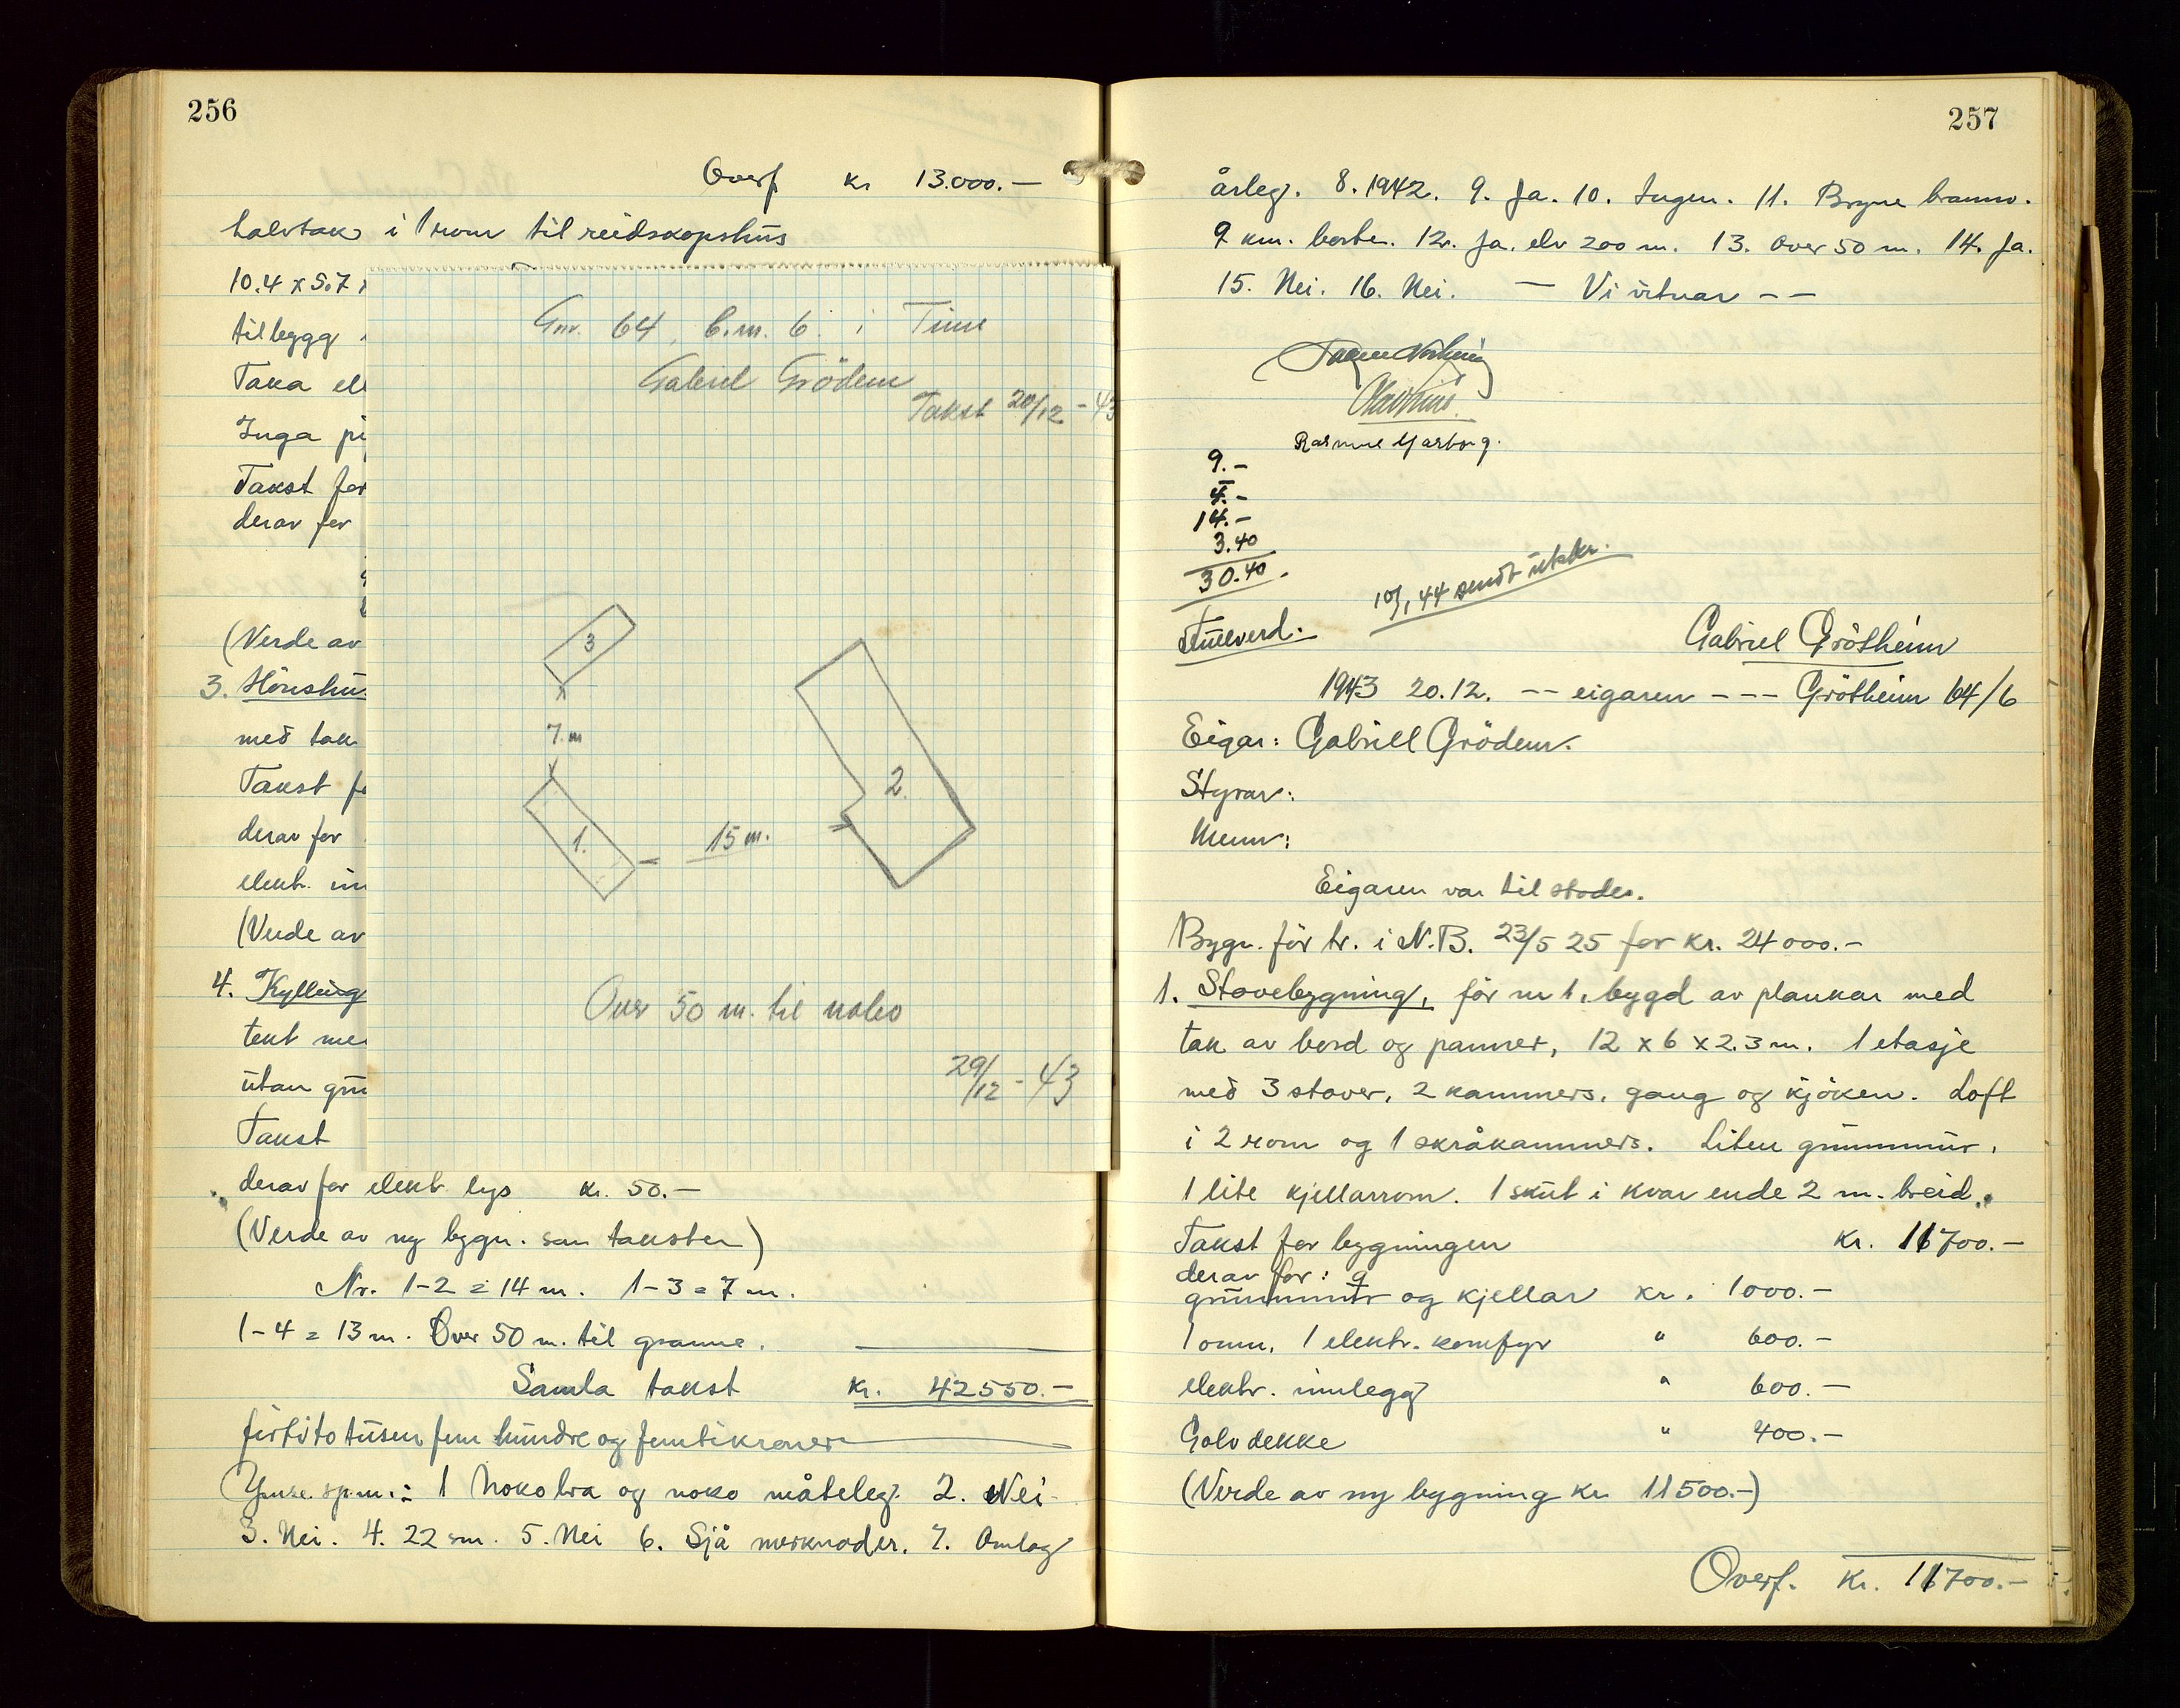 256
Overf kr 13.000.—
halvtak i 1 rom til reidskapshus
10.4 x 5.7 x
tilbygg
Taka ele
Inga pi
Takst for
derav for
(Verde av
3. Hönshus
med tak
Takst fo
derav for
elektr. inn
(Verde av
4. Kylling
tekt me
utan gru
Takst
derav for elektr. lys kr. 50.—
(Verde av ny bygn. som taksten)
Nr. 1-2 = 14 m. 1-3 = 7 m.
1-4 = 13 m. Over 50 m. til granne.
Samla takst kr. 42550.—
förtitotusen fem hundre og femtikroner
Ymse sp.m.: 1 Noko bra og noko måteleg. 2. Nei
3. Nei. 4. 22 sm. 5. Nei 6. Sjå merknader. 7. Omlag
Gnr. 64, b.nr. 6. i Time
Gabriel Grödem
Takst 20/12 - 43
3
7. m
1.
15 m.
2.
Over 50 m. til nabo
29/12 - 43
257
årleg. 8. 1942. 9. Ja. 10. Ingen. 11. Bryne brannv.
9 km. borte. 12. Ja. elv 200 m. 13. Over 50 m. 14. Ja.
15. Nei. 16. Nei. — Vi vitnar — —
Rasmus Garborg.
9.-
4.-
14.-
3.40
30.40.
10/1 44 sendt utskr.
Fullverd. Gabriel Grötheim
1943 20.12. -- eigaren --- Grötheim 64/6
Eigar: Gabriell Grödem.
Styrar:
Menn:
Eigaren var til stades.
Bygn. för tr. i N.B. 23/5 25 for kr. 24000.—
1. Stovebygning, för nr 1, bygd av plankar med
tak av bord og panner, 12 x 6 x 2.3 m. 1 etasje
med 3 stover, 2 kammers, gang og kjöken. Loft
i 2 rom og 1 skråkammers. Liten grunnmur,
1 lite kjellarrom. 1 skut i kvar ende 2 m. breid.
Takst for bygningen kr. 11700.—
derav for:
grunnmur og kjellar kr. 1000.—
1 omn, 1 elektr. komfyr " 600.—
elektr. innlegg " 600.—
Golvdekke " 400.—
(Verde av ny bygning kr 11500.—)
Overf. kr. 11700.—